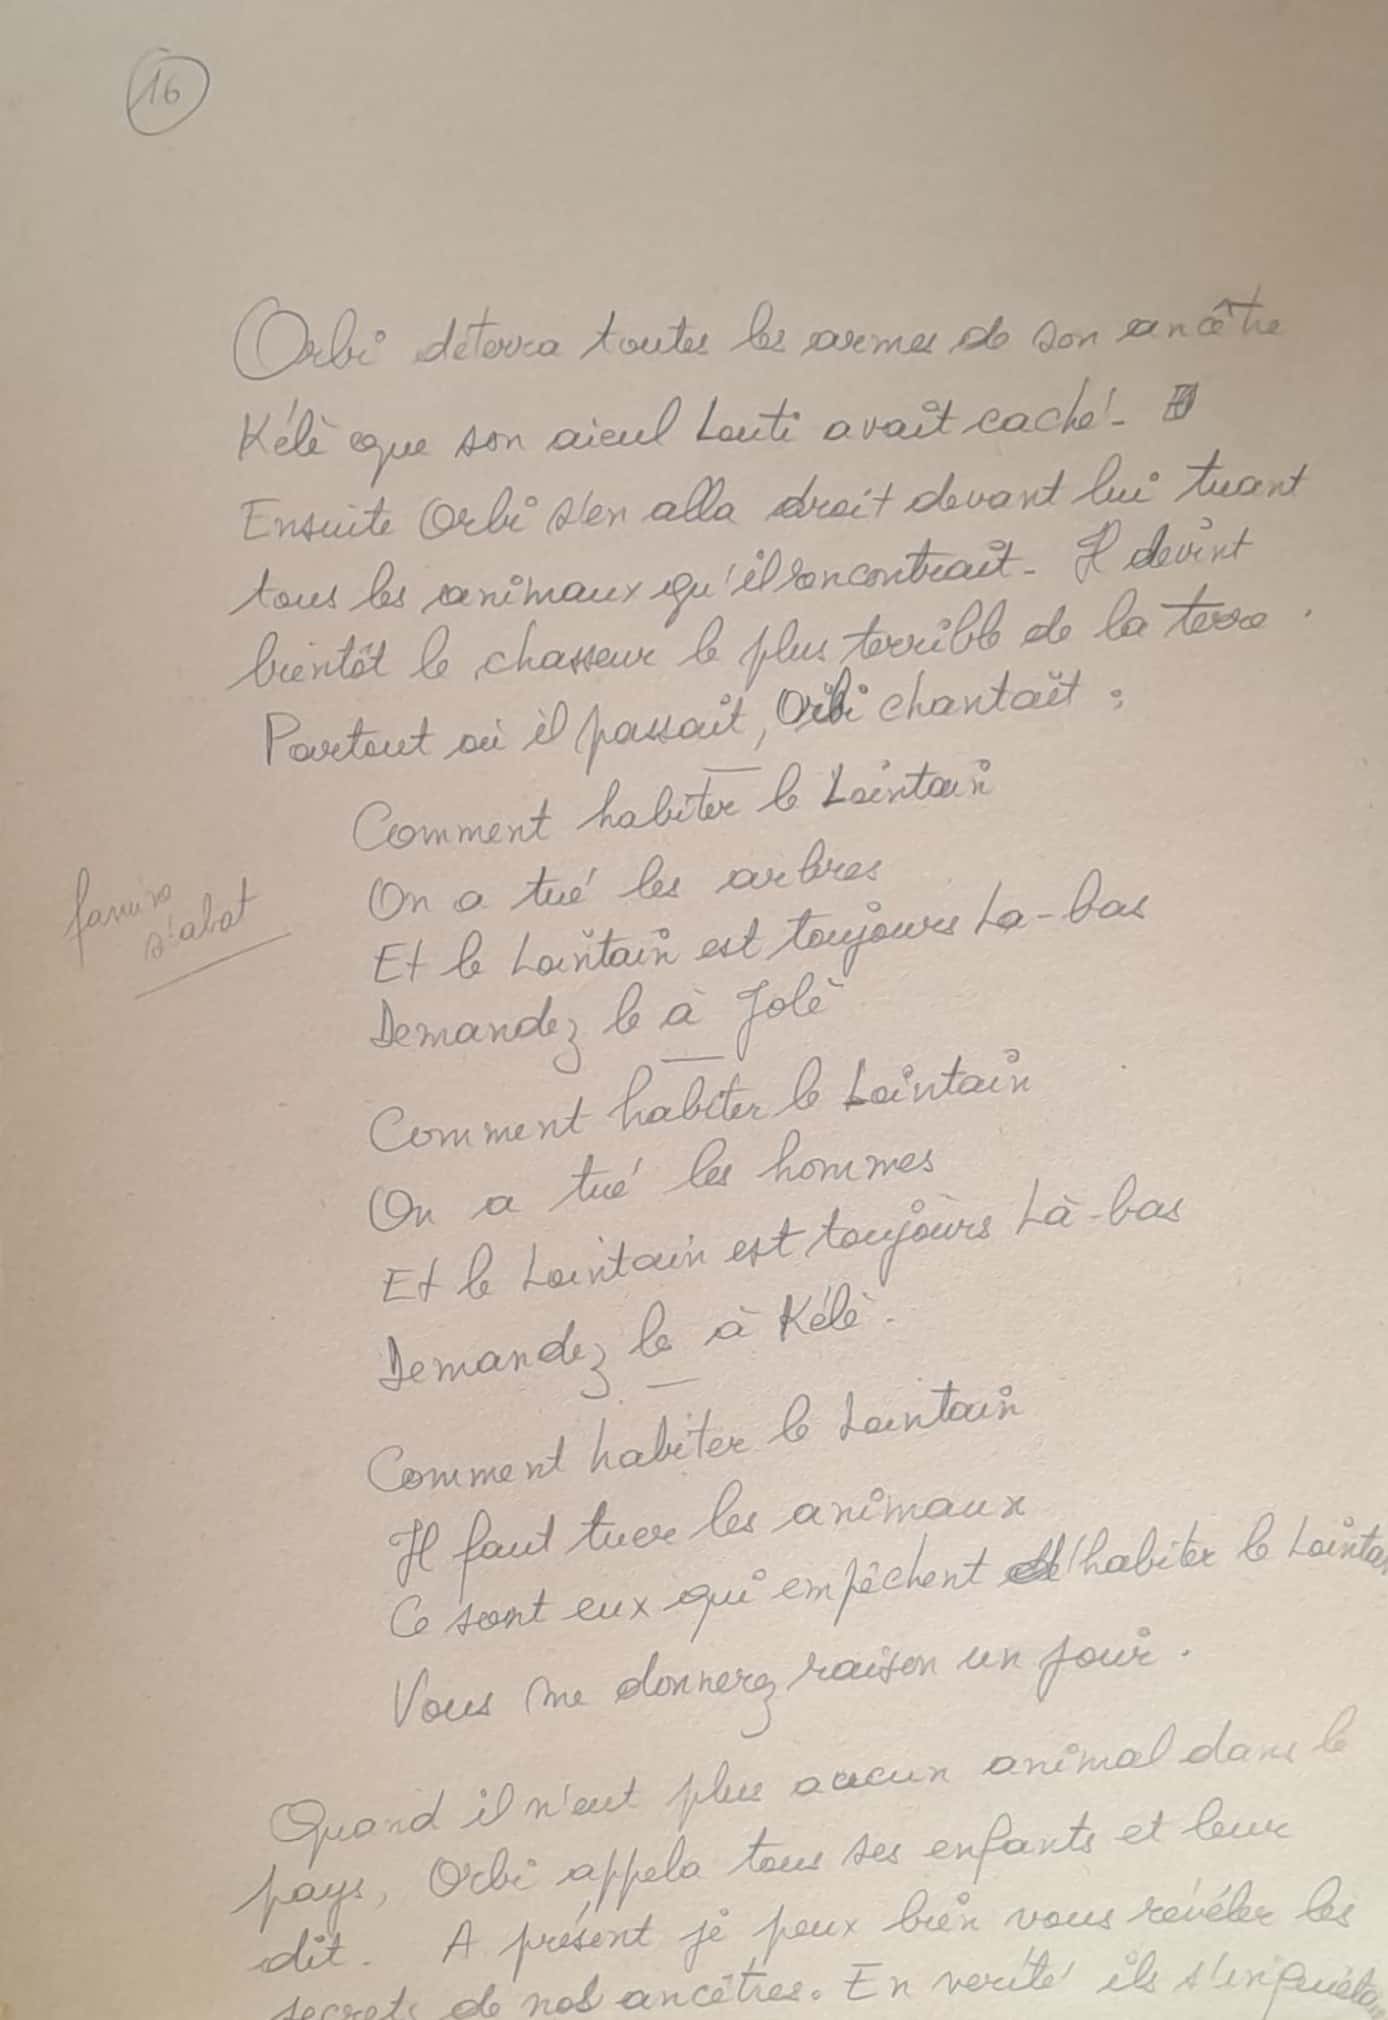 16
Orbi déterra toutes les armes de son ancêtre
Kélè que son aïeul Louti avait caché.
Ensuite Orbi s'en alla droit devant lui tuant
tous les animaux qu'il rencontrait. Il devint
bientôt le chasseur le plus terrible de la terre.
Partout où il passait, Orbi chantait :
Comment habiter le Lointain
On a tué les arbres
Et le Lointain est toujours La-bas
Demandez le à Jolè
famine
s'abat
Comment habiter le Lointain
On a tué les hommes
Et le Lointain est toujours Là-bas
Demandez le à Kélè.
Comment habiter le Lointain
Il faut tuer les animaux
Ce sont eux qui empêchent d'habiter le Lointa
Vous me donnerez raison un jour.
Quand il n'eut plus aucun animal dans le
pays, Orbi appela tous ses enfants et leur
dit. A présent je peux bien vous révéler les
secrets de nos ancêtres. En verité ils s'inquiéta